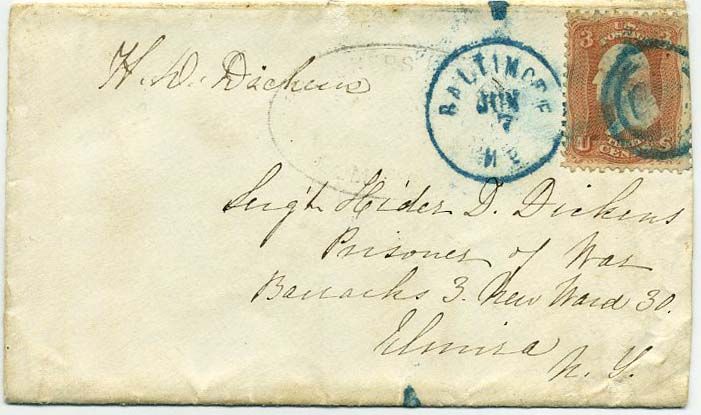 H. D. Dickens
BALTIMORE
JUN
7
MD
3 U.S. POSTAGE 3
U THREE S
CENTS
Serg't Hider D. Dickens
Prisoner of War
Barracks 3. New Ward 30.
Elmira
N. Y.